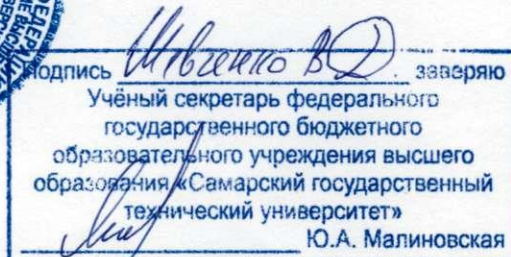 подпись Шевченко В.Д. заверяю
Учёный секретарь федерального
государственного бюджетного
образовательного учреждения высшего
образования «Самарский государственный
технический университет»
Ю.А. Малиновская